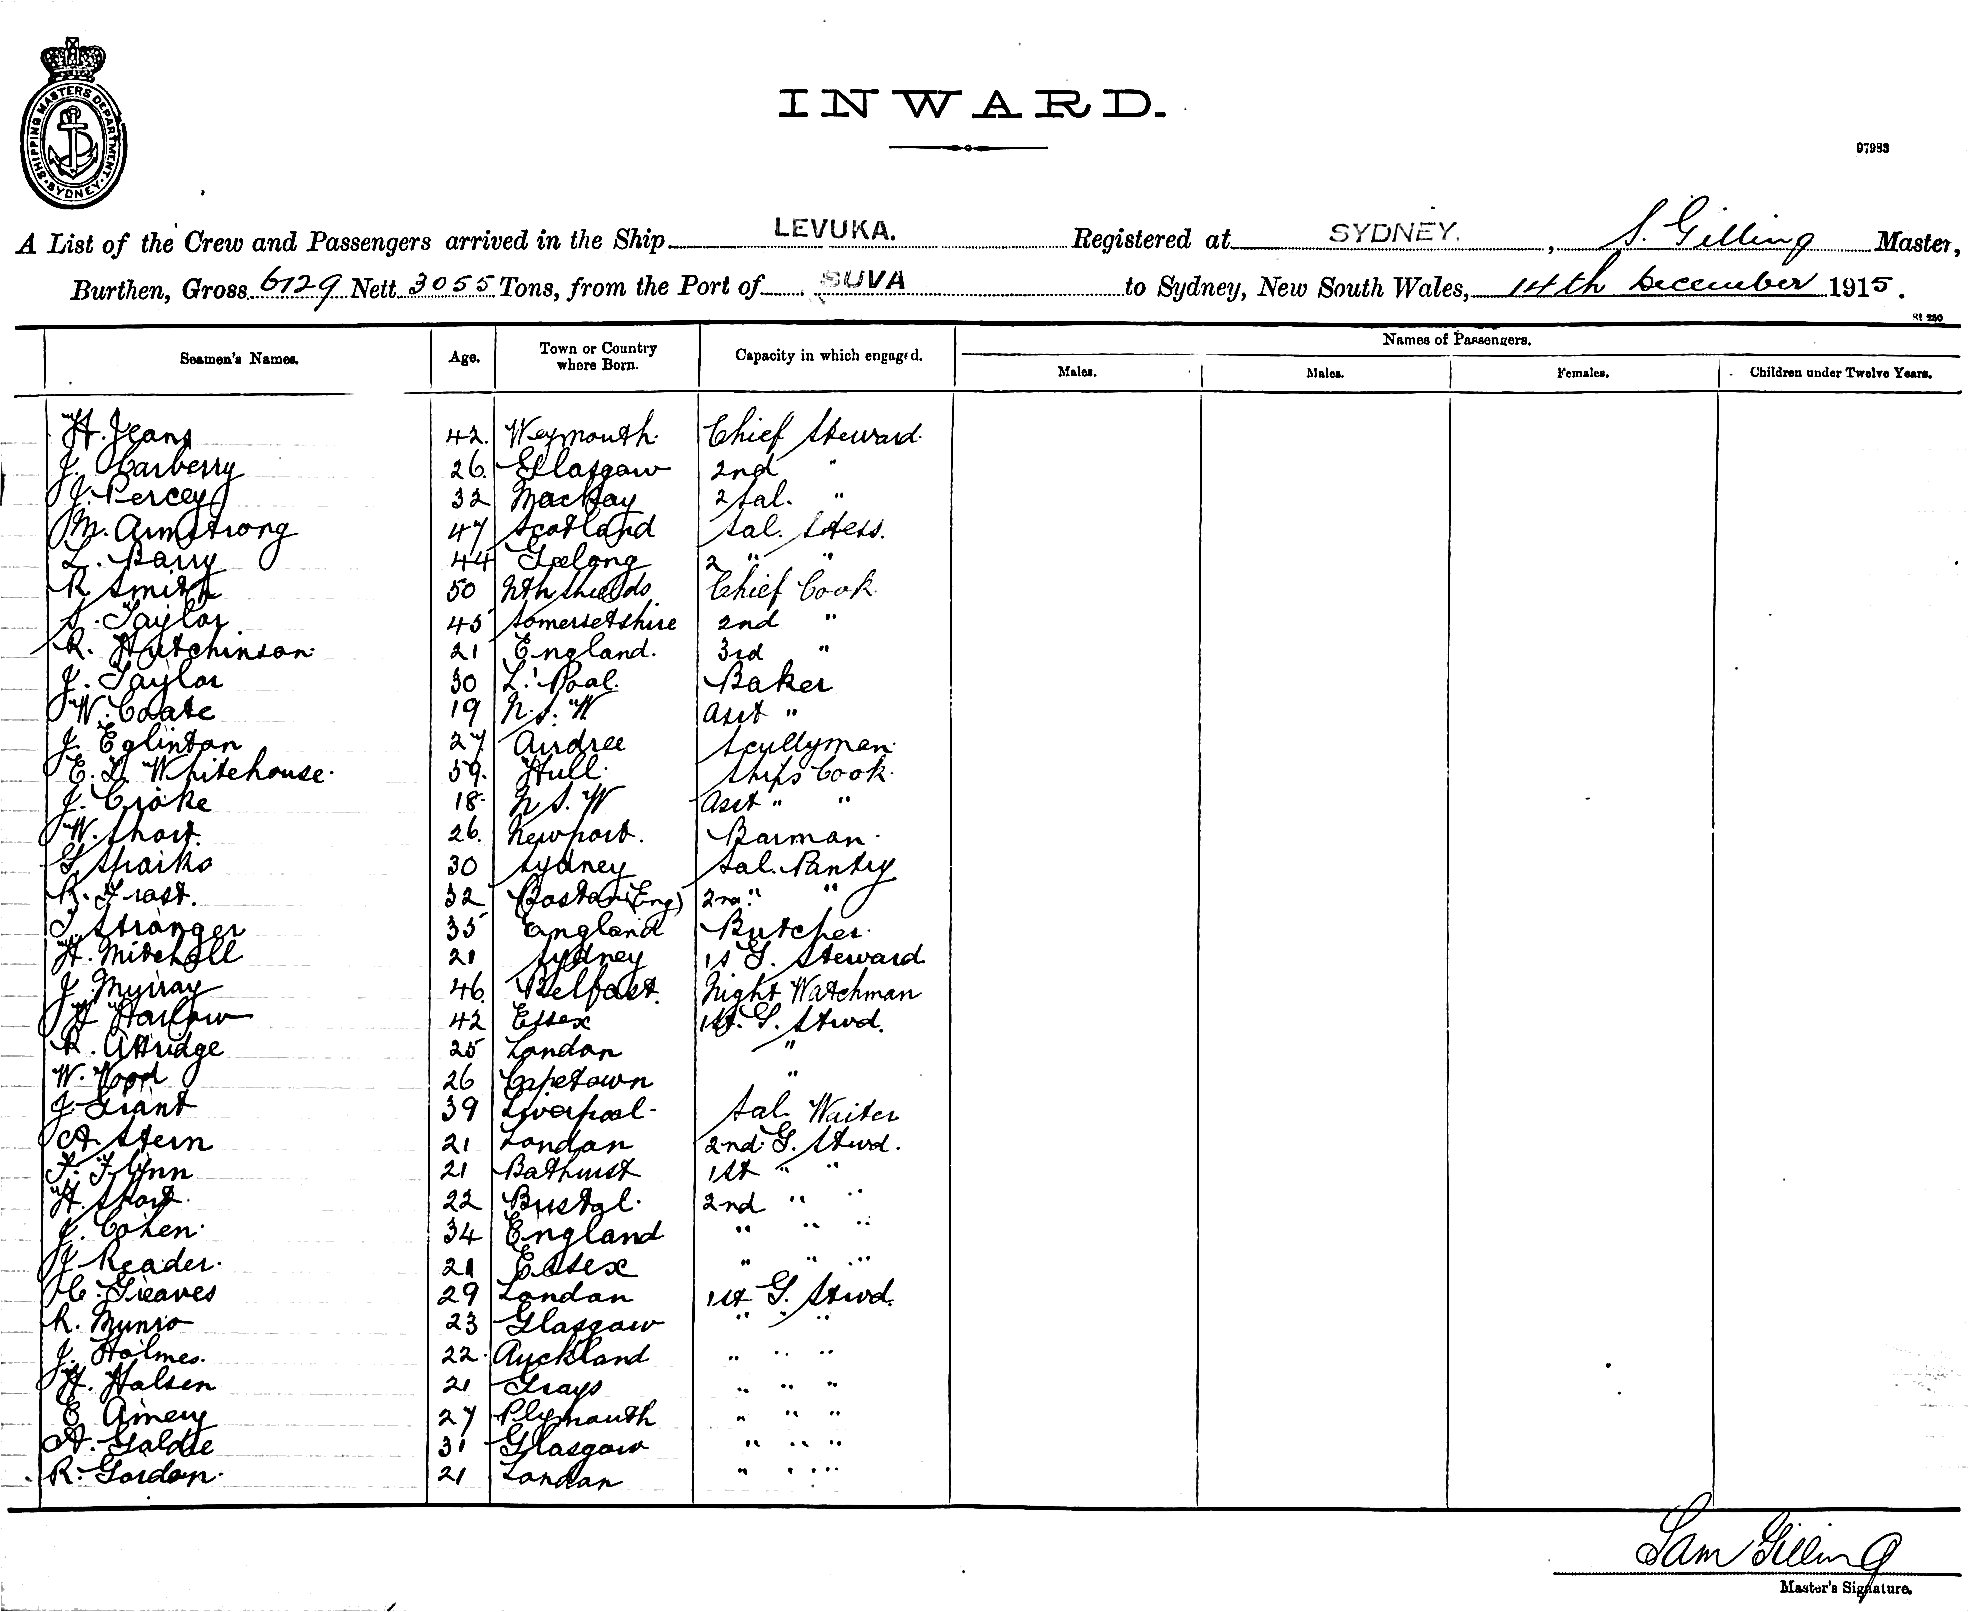 SHIPPING MASTERS DEPARTMENT. SYDNEY.
INWARD.
97983
A List of the Crew and Passengers arrived in the Ship LEVUKA. Registered at SYDNEY., S. Gilling Master,
Burthen, Gross 6129 Nett 3055 Tons, from the Port of SUVA to Sydney, New South Wales, 14th December 1915.
Seamen's Names. Age. Town or Country where Born. Capacity in which engaged. Names of Passengers.
Males. Males. Females. Children under Twelve Years.
H. Jeans 42. Weymouth. Chief Steward.
J. Carberry 26. Glasgow 2nd "
J. Percey 32 Mackay 2 Sal. "
M. Armstrong 47 Scotland Sal. Stess.
L. Barry 44 Geelong 2 " "
R Smith 50 Nth Shields. Chief Cook
S. Taylor. 45 Somersetshire 2nd "
R. Hutchinson. 21 England. 3rd "
J. Taylor 30 L'Pool. Baker
W. Coate 19 N.S.W Asst "
J. Eglinton 27 Airdree Scullyman.
E. D. Whitehouse. 59. Hull. Ships Cook.
J. Croke 18. N S. W Asst " "
W. Short. 26. Newport. Barman.
G Sparks 30 Sydney Sal. Pantry
R. Frost. 32 Boston (Eng) 2nd " "
T. Stranger 35 England Butcher.
H. Mitchell 21 Sydney 1st G. Steward
J. Murray 46. Belfast. Night Watchman
H Harlow 42 Essex 1st. G. Stwd.
R. Attridge 25 London "
W. Wood 26 Capetown "
J. Grant 39 Liverpool. Sal. Waiter
A. Stern 21 London 2nd G. Stwd.
F. Flynn 21 Bathurst 1st " "
H. Short. 22 Bristol. 2nd " "
J. Cohen. 34 England " " "
J Reader. 21 Essex " " "
C. Greaves 29 London 1st G. Stwd.
R. Munro 23 Glasgow " "
J. Holmes. 22. Auckland " " "
H. Halsen 21 Grays " " "
E Amery 27 Plymouth " " "
A. Galdie 31 Glasgow " " "
R. Gordon. 21 London " " "
Sam Gilling
Master's Signature.